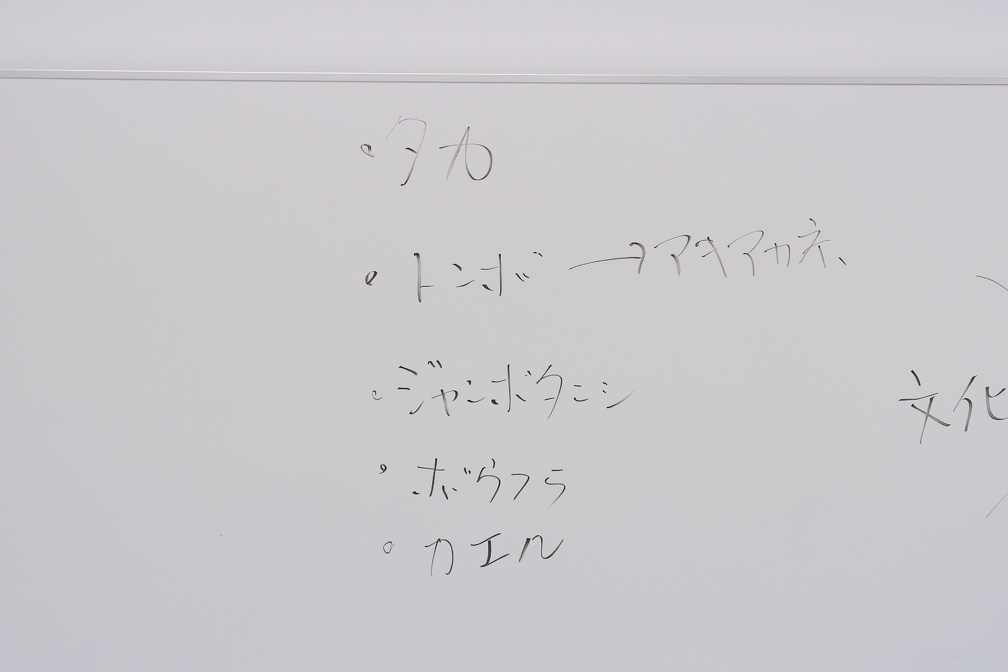 ・タカ
・トンボ → アキアカネ
・ジャンボタニシ
・ボウフラ
・カエル
文化